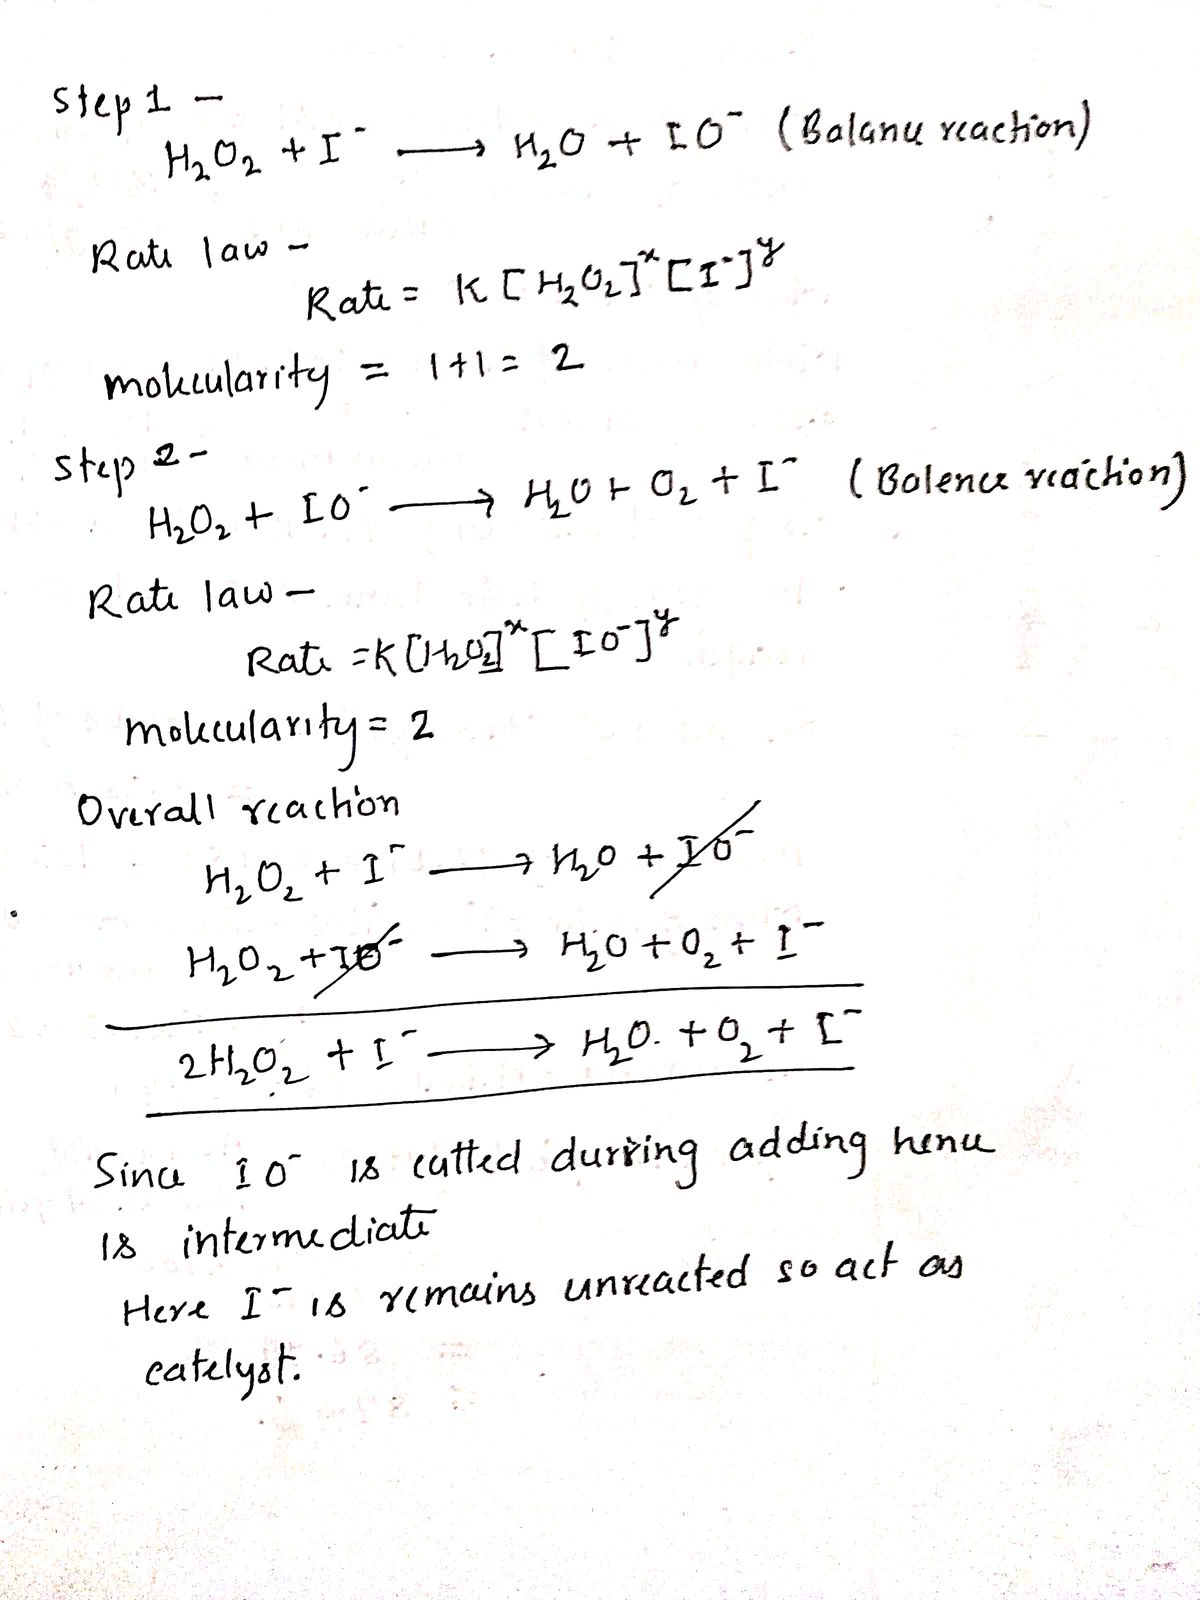 Step 1 -
H₂O₂ + I⁻ ⟶ H₂O + IO⁻ (Balance reaction)
Rate law -
Rate = K [H₂O₂]ˣ [I⁻]ʸ
molecularity = 1+1 = 2
Step 2 -
H₂O₂ + IO⁻ ⟶ H₂O + O₂ + I⁻ (Balence reaction)
Rate law -
Rate = K [H₂O₂]ˣ [IO⁻]ʸ
molecularity = 2
Overall reaction
H₂O₂ + I⁻ ⟶ H₂O + IO⁻
H₂O₂ + IO⁻ ⟶ H₂O + O₂ + I⁻
2H₂O₂ + I⁻ ⟶ H₂O. + O₂ + I⁻
Since IO⁻ is cutted durring adding hence
is intermediate
Here I⁻ is remains unreacted so act as
catelyst.